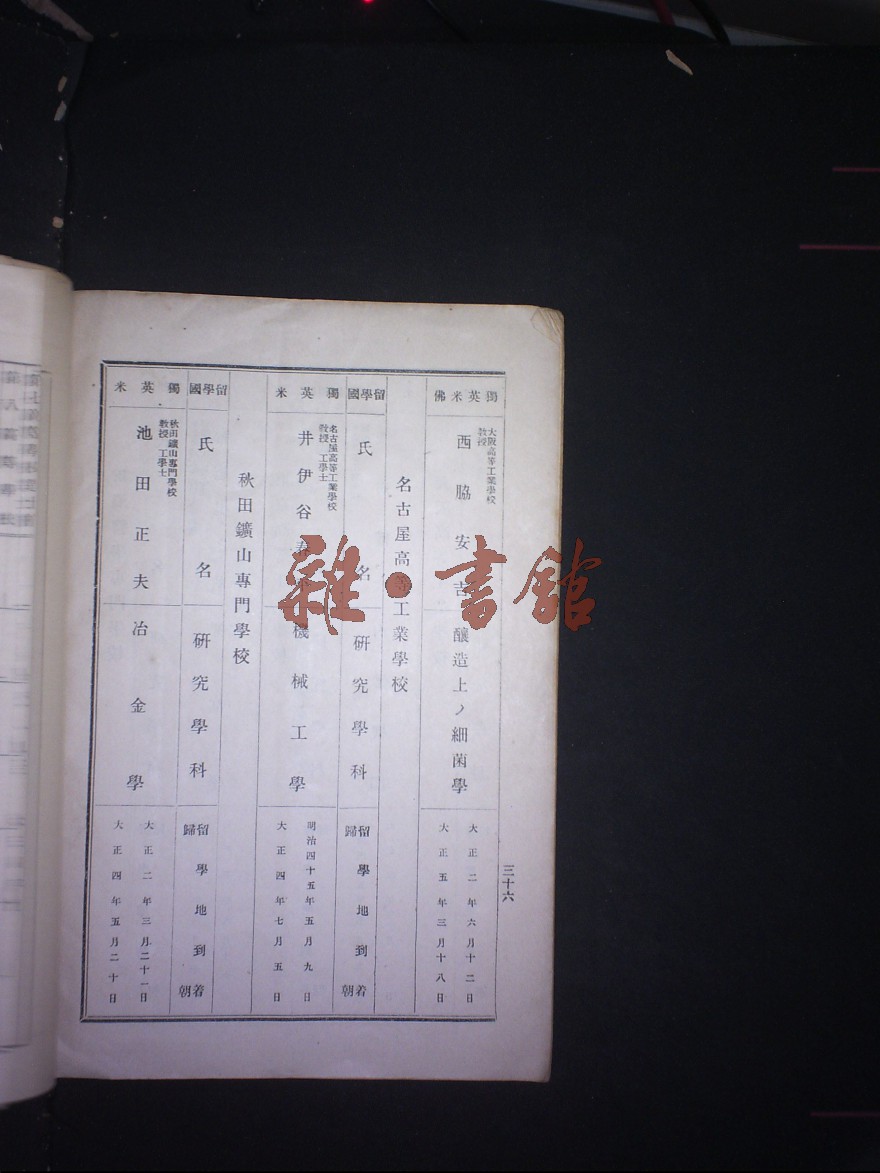 三十六
獨英米佛
大阪高等工業學校
教授
西脇安吉
釀造上ノ細菌學
大正二年六月十二日
大正五年三月十八日
名古屋高等工業學校
留學國
氏名
研究學科
留學地到着
歸朝
獨英米
名古屋高等工業學校
教授 工學士
井伊谷春
機械工學
明治四十五年五月九日
大正四年七月五日
秋田鑛山專門學校
留學國
氏名
研究學科
留學地到着
歸朝
獨英米
秋田鑛山專門學校
教授 工學士
池田正夫
冶金學
大正二年三月二十一日
大正四年五月二十日
雜·書館